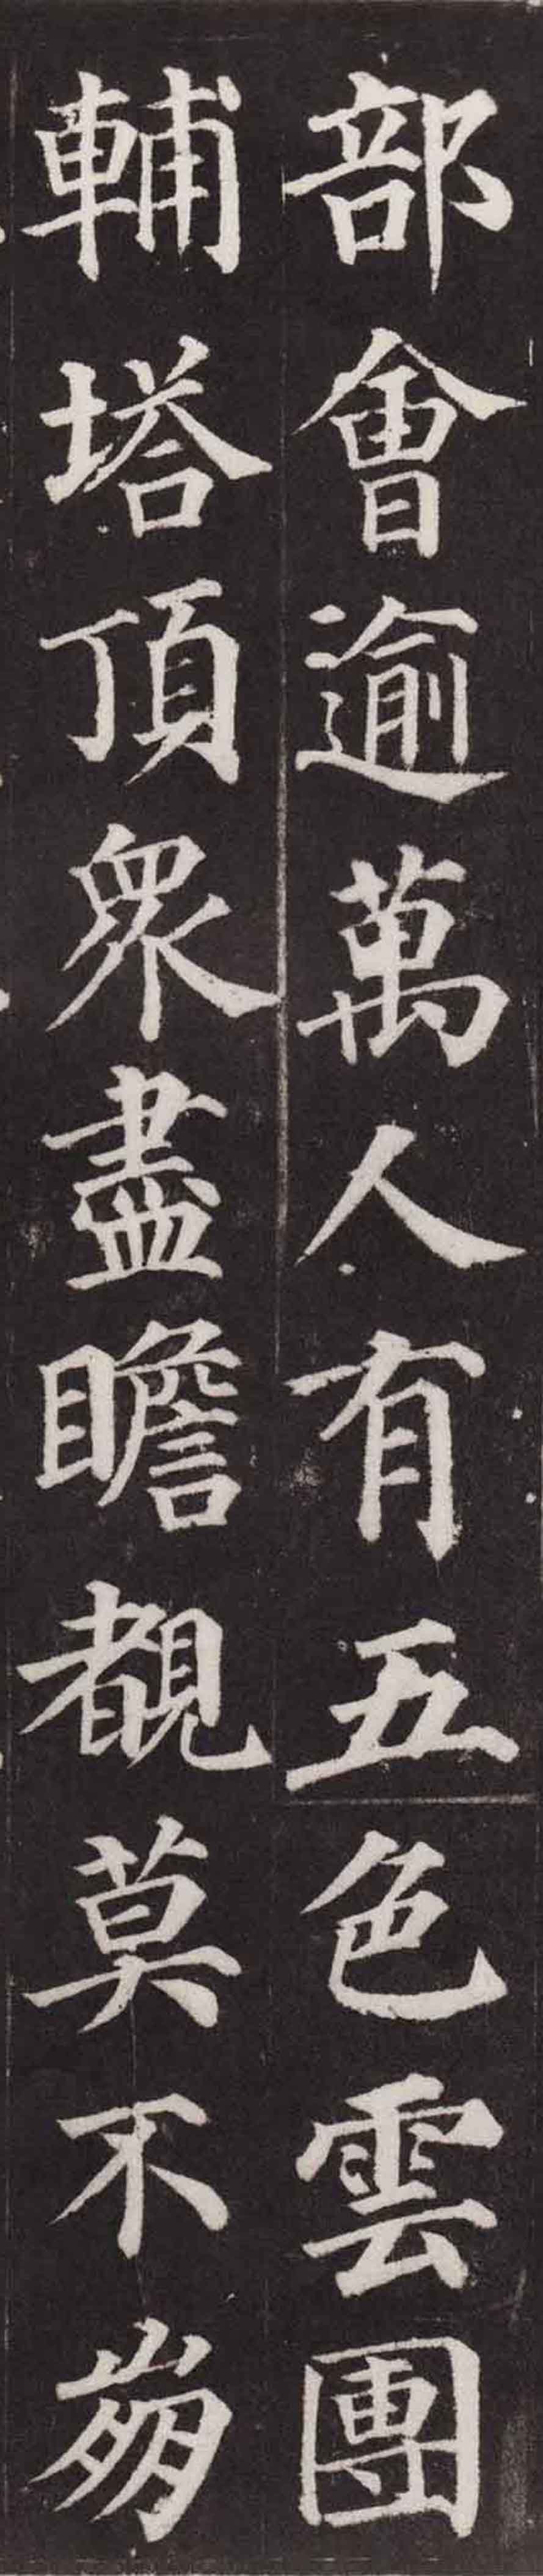 部會逾萬人有五色雲團
輔塔頂眾盡瞻覩莫不崩